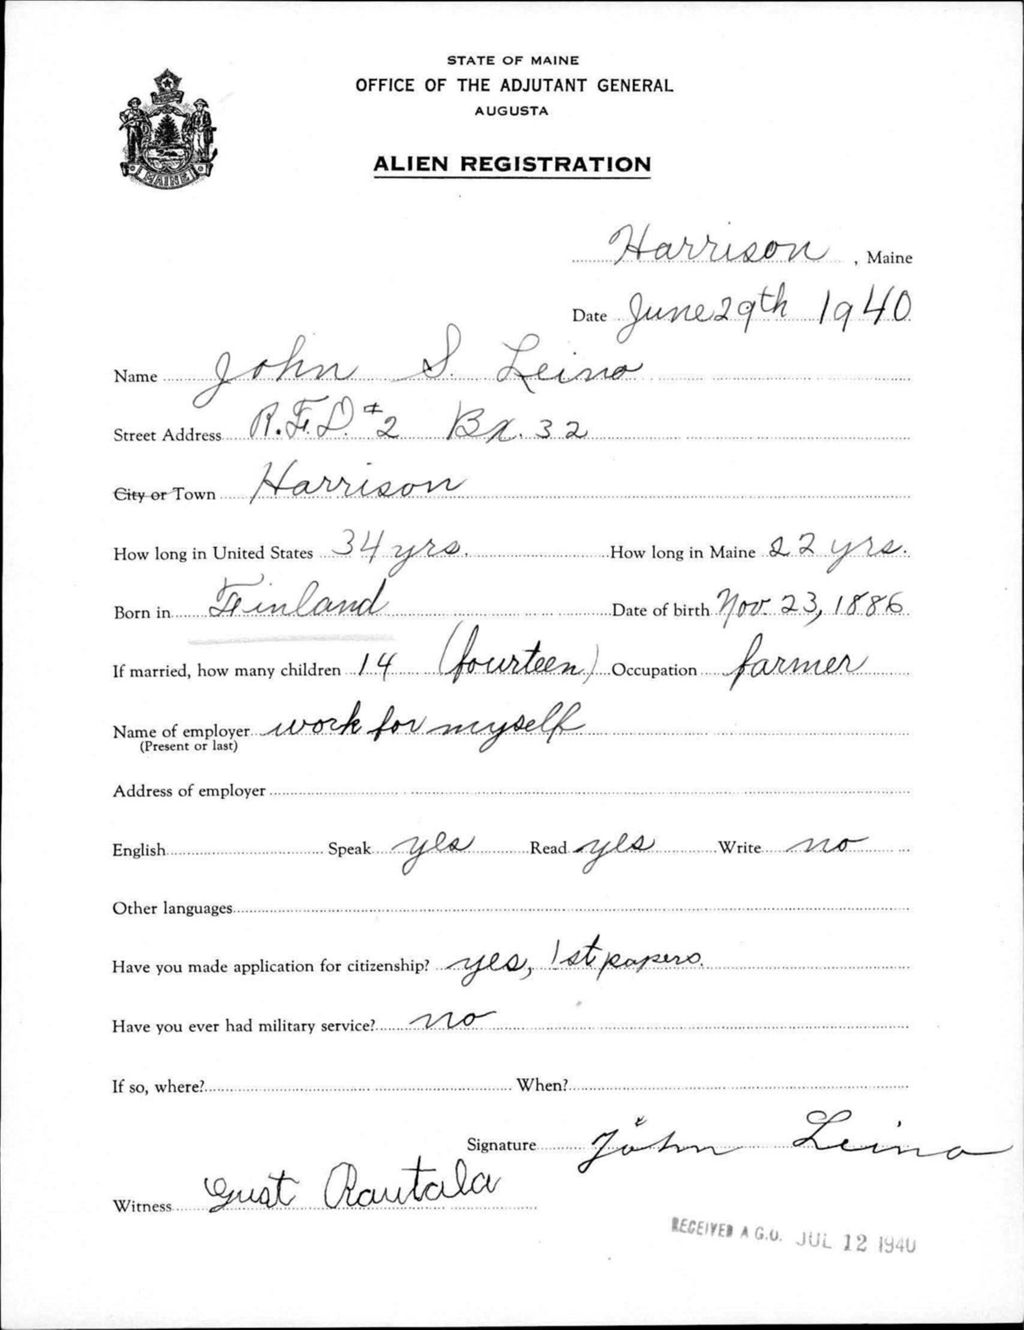 STATE OF MAINE
OFFICE OF THE ADJUTANT GENERAL
AUGUSTA
ALIEN REGISTRATION
MAINE
Harrison, Maine
Date June 29th 1940
Name John S. Leino
Street Address R.F.D. #2 Bx. 32
City or Town Harrison
How long in United States 34 yrs. How long in Maine 22 yrs.
Born in Finland Date of birth Nov. 23, 1886
If married, how many children 14 (fourteen) Occupation farmer
Name of employer work for myself
(Present or last)
Address of employer
English Speak yes Read yes Write no
Other languages
Have you made application for citizenship? yes, 1st papers.
Have you ever had military service? no
If so, where? When?
Signature John Leino
Witness Gust Rautala
RECEIVED A.G.O. JUL 12 1940